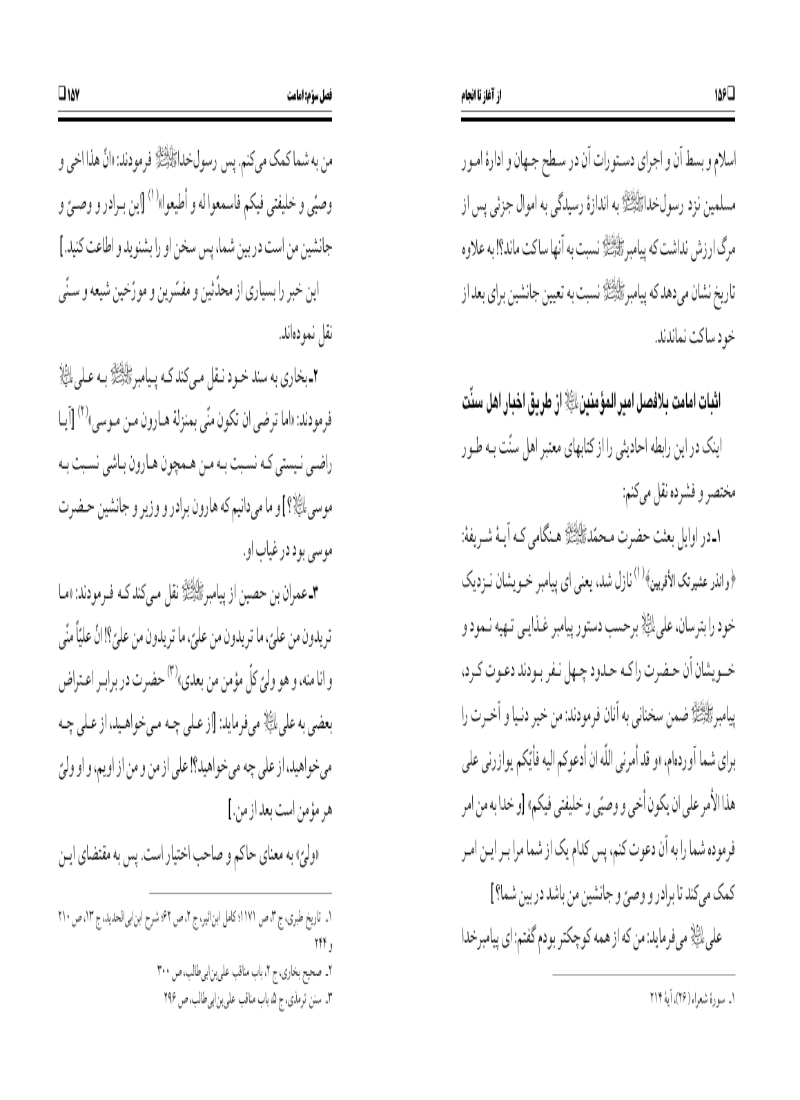 ❑ ۱۵۶ از آغاز تا انجام
اسلام و بسط آن و اجرای دستورات آن در سطح جهان و ادارهٔ امور
مسلمین نزد رسول‌خداﷺ به اندازهٔ رسیدگی به اموال جزئی پس از
مرگ ارزش نداشت که پیامبرﷺ نسبت به آنها ساکت ماند؟! به علاوه
تاریخ نشان می‌دهد که پیامبرﷺ نسبت به تعیین جانشین برای بعد از
خود ساکت نماندند.
اثبات امامت بلافصل امیرالمؤمنین از طریق اخبار اهل سنّت
اینک در این رابطه احادیثی را از کتابهای معتبر اهل سنّت به طور
مختصر و فشرده نقل می‌کنم:
۱ـ در اوایل بعثت حضرت محمّدﷺ هنگامی که آیهٔ شریفهٔ:
﴿و انذر عشیرتک الأقربین﴾(۱) نازل شد، یعنی ای پیامبر خویشان نزدیک
خود را بترسان، علی برحسب دستور پیامبر غذایی تهیه نمود و
خویشان آن حضرت را که حدود چهل نفر بودند دعوت کرد،
پیامبرﷺ ضمن سخنانی به آنان فرمودند: من خیر دنیا و آخرت را
برای شما آورده‌ام، «و قد أمرنی اللّه ان أدعوکم الیه فأیّکم یوازرنی علی
هذا الأمر علی ان یکون أخی و وصیّی و خلیفتی فیکم» [و خدا به من امر
فرموده شما را به آن دعوت کنم، پس کدام یک از شما مرا بر این امر
کمک می‌کند تا برادر و وصیّ و جانشین من باشد در بین شما؟]
علی می‌فرماید: من که از همه کوچکتر بودم گفتم: ای پیامبرخدا
۱ـ سورهٔ شعراء (۲۶)، آیهٔ ۲۱۴
فصل سوّم: امامت ۱۵۷ ❑
من به شما کمک می‌کنم. پس رسول‌خداﷺ فرمودند: «انّ هذا اخی و
وصیّی و خلیفتی فیکم فاسمعوا له و أطیعوا»(۱) [این برادر و وصیّ و
جانشین من است در بین شما، پس سخن او را بشنوید و اطاعت کنید.]
این خبر را بسیاری از محدّثین و مفسّرین و مورّخین شیعه و سنّی
نقل نموده‌اند.
۲ـ بخاری به سند خود نقل می‌کند که پیامبرﷺ به علی
فرمودند: «اما ترضی ان تکون منّی بمنزلة هارون من موسی»(۲) [آیا
راضی نیستی که نسبت به من همچون هارون باشی نسبت به
موسی؟] و ما می‌دانیم که هارون برادر و وزیر و جانشین حضرت
موسی بود در غیاب او.
۳ـ عمران بن حصین از پیامبرﷺ نقل می‌کند که فرمودند: «ما
تریدون من علیّ، ما تریدون من علیّ، ما تریدون من علیّ؟! انّ علیّاً منّی
و انا منه، و هو ولیّ کلّ مؤمن من بعدی»(۳) حضرت در برابر اعتراض
بعضی به علی می‌فرماید: [از علی چه می‌خواهید، از علی چه
می‌خواهید، از علی چه می‌خواهید؟! علی از من و من از اویم، و او ولیّ
هر مؤمن است بعد از من.]
«ولیّ» به معنای حاکم و صاحب اختیار است. پس به مقتضای این
۱ـ تاریخ طبری، ج ۳، ص ۱۱۷۱؛ کامل ابن‌اثیر، ج ۲، ص ۶۲؛ شرح ابن‌ابی‌الحدید، ج ۱۳، ص ۲۱۰
و ۲۴۴
۲ـ صحیح بخاری، ج ۲، باب مناقب علی‌بن‌ابی‌طالب، ص ۳۰۰
۳ـ سنن ترمذی، ج ۵، باب مناقب علی‌بن‌ابی‌طالب، ص ۲۹۶